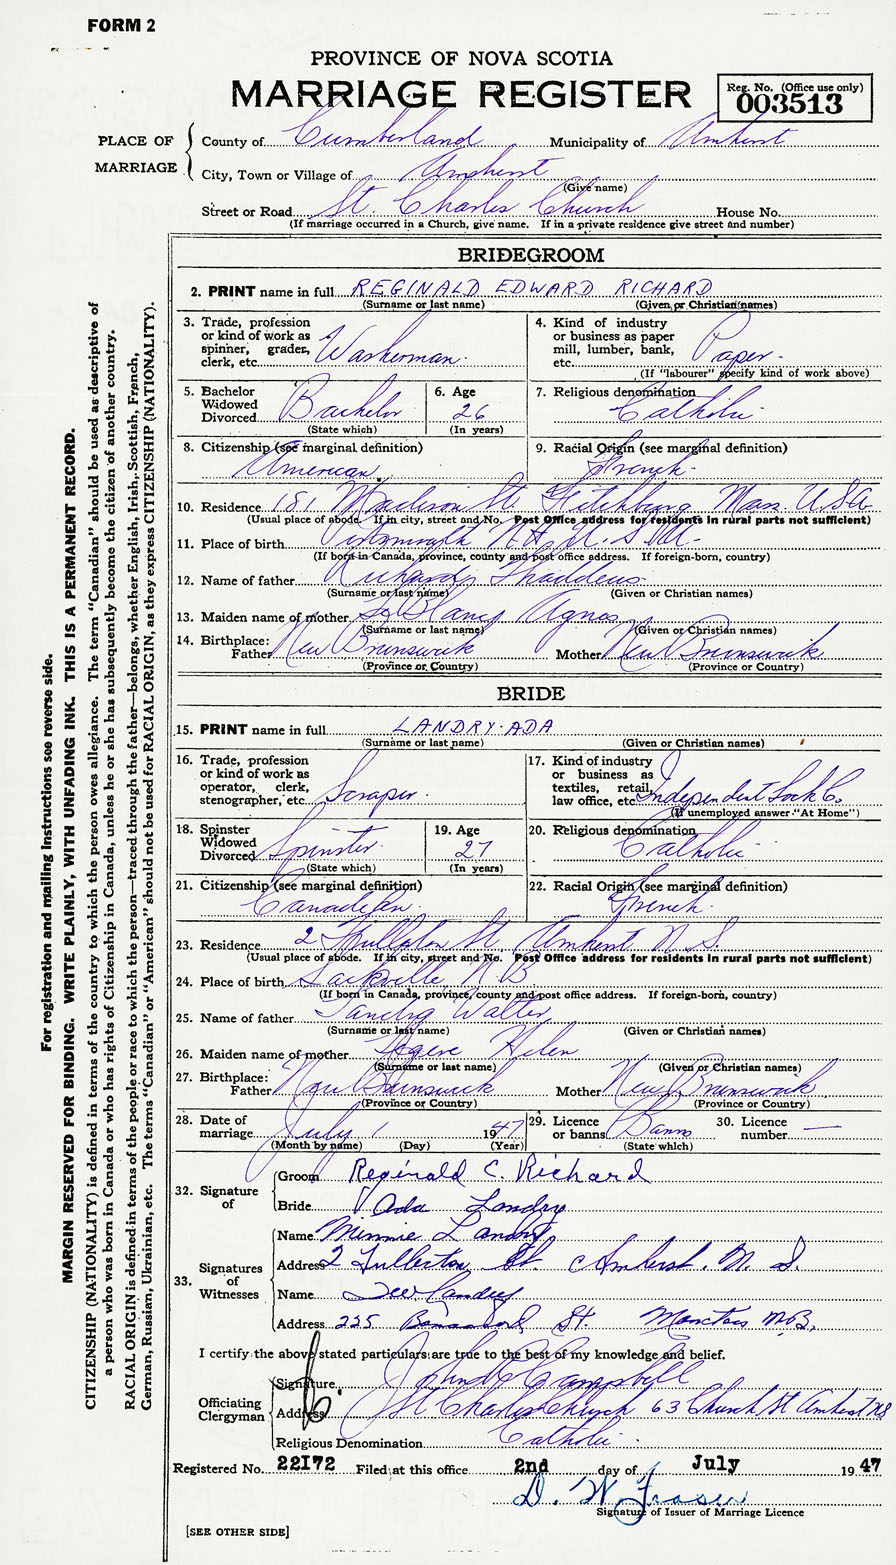 FORM 2
PROVINCE OF NOVA SCOTIA
MARRIAGE REGISTER
Reg. No. (Office use only)
003513
PLACE OF MARRIAGE
County of Cumberland Municipality of Amherst
City, Town or Village of Amherst
(Give name)
Street or Road St. Charles Church House No.
(If marriage occurred in a Church, give name. If in a private residence give street and number)
BRIDEGROOM
2. PRINT name in full REGINALD EDWARD RICHARD
(Surname or last name) (Given or Christian names)
3. Trade, profession or kind of work as spinner, grader, clerk, etc. Washerman
4. Kind of industry or business as paper mill, lumber, bank, etc. Paper
(If "labourer" specify kind of work above)
5. Bachelor Widowed Divorced Bachelor
(State which)
6. Age 26
(In years)
7. Religious denomination Catholic
8. Citizenship (see marginal definition)
American
9. Racial Origin (see marginal definition)
French
10. Residence 181 Madison St. Fitchburg Mass. U.S.A.
(Usual place of abode. If in city, street and No. Post Office address for residents in rural parts not sufficient)
11. Place of birth Portsmouth N.H. U.S.A.
(If born in Canada, province, county and post office address. If foreign-born, country)
12. Name of father Richard Thaddeus
(Surname or last name) (Given or Christian names)
13. Maiden name of mother LeBlanc Agnes
(Surname or last name) (Given or Christian names)
14. Birthplace:
Father New Brunswick Mother New Brunswick
(Province or Country) (Province or Country)
BRIDE
15. PRINT name in full LANDRY-ADA
(Surname or last name) (Given or Christian names)
16. Trade, profession or kind of work as operator, clerk, stenographer, etc. Scraper
17. Kind of industry or business as textiles, retail, law office, etc. Independent Lock Co.
(If unemployed answer "At Home")
18. Spinster Widowed Divorced Spinster
(State which)
19. Age 27
(In years)
20. Religious denomination Catholic
21. Citizenship (see marginal definition)
Canadian
22. Racial Origin (see marginal definition)
French
23. Residence 2 Fullerton St. Amherst N.S.
(Usual place of abode. If in city, street and No. Post Office address for residents in rural parts not sufficient)
24. Place of birth Sackville N.B
(If born in Canada, province, county and post office address. If foreign-born, country)
25. Name of father Landry Walter
(Surname or last name) (Given or Christian names)
26. Maiden name of mother Helen
(Surname or last name) (Given or Christian names)
27. Birthplace:
Father New Brunswick Mother New Brunswick
(Province or Country) (Province or Country)
28. Date of marriage July 1 1947
(Month by name) (Day) (Year)
29. Licence or banns Banns
(State which)
30. Licence number —
32. Signature of
Groom Reginald E. Richard
Bride Ada Landry
33. Signatures of Witnesses
Name Minnie Landry
Address 2 Fullerton St Amherst. N. S.
Name Landry
Address 225 St. Moncton N.B.
I certify the above stated particulars are true to the best of my knowledge and belief.
Officiating Clergyman
Signature John Campbell
Address St Charles Church 63 Church St Amherst NS
Religious Denomination Catholic
Registered No. 22172 Filed at this office 2nd day of July 1947
D. W. Fraser
Signature of Issuer of Marriage Licence
[SEE OTHER SIDE]
For registration and mailing instructions see reverse side.
MARGIN RESERVED FOR BINDING. WRITE PLAINLY, WITH UNFADING INK. THIS IS A PERMANENT RECORD.
CITIZENSHIP (NATIONALITY) is defined in terms of the country to which the person owes allegiance. The term "Canadian" should be used as descriptive of
a person who was born in Canada or who has rights of Citizenship in Canada, unless he or she has subsequently become the citizen of another country.
RACIAL ORIGIN is defined in terms of the people or race to which the person—traced through the father—belongs, whether English, Irish, Scottish, French,
German, Russian, Ukrainian, etc. The terms "Canadian" or "American" should not be used for RACIAL ORIGIN, as they express CITIZENSHIP (NATIONALITY).